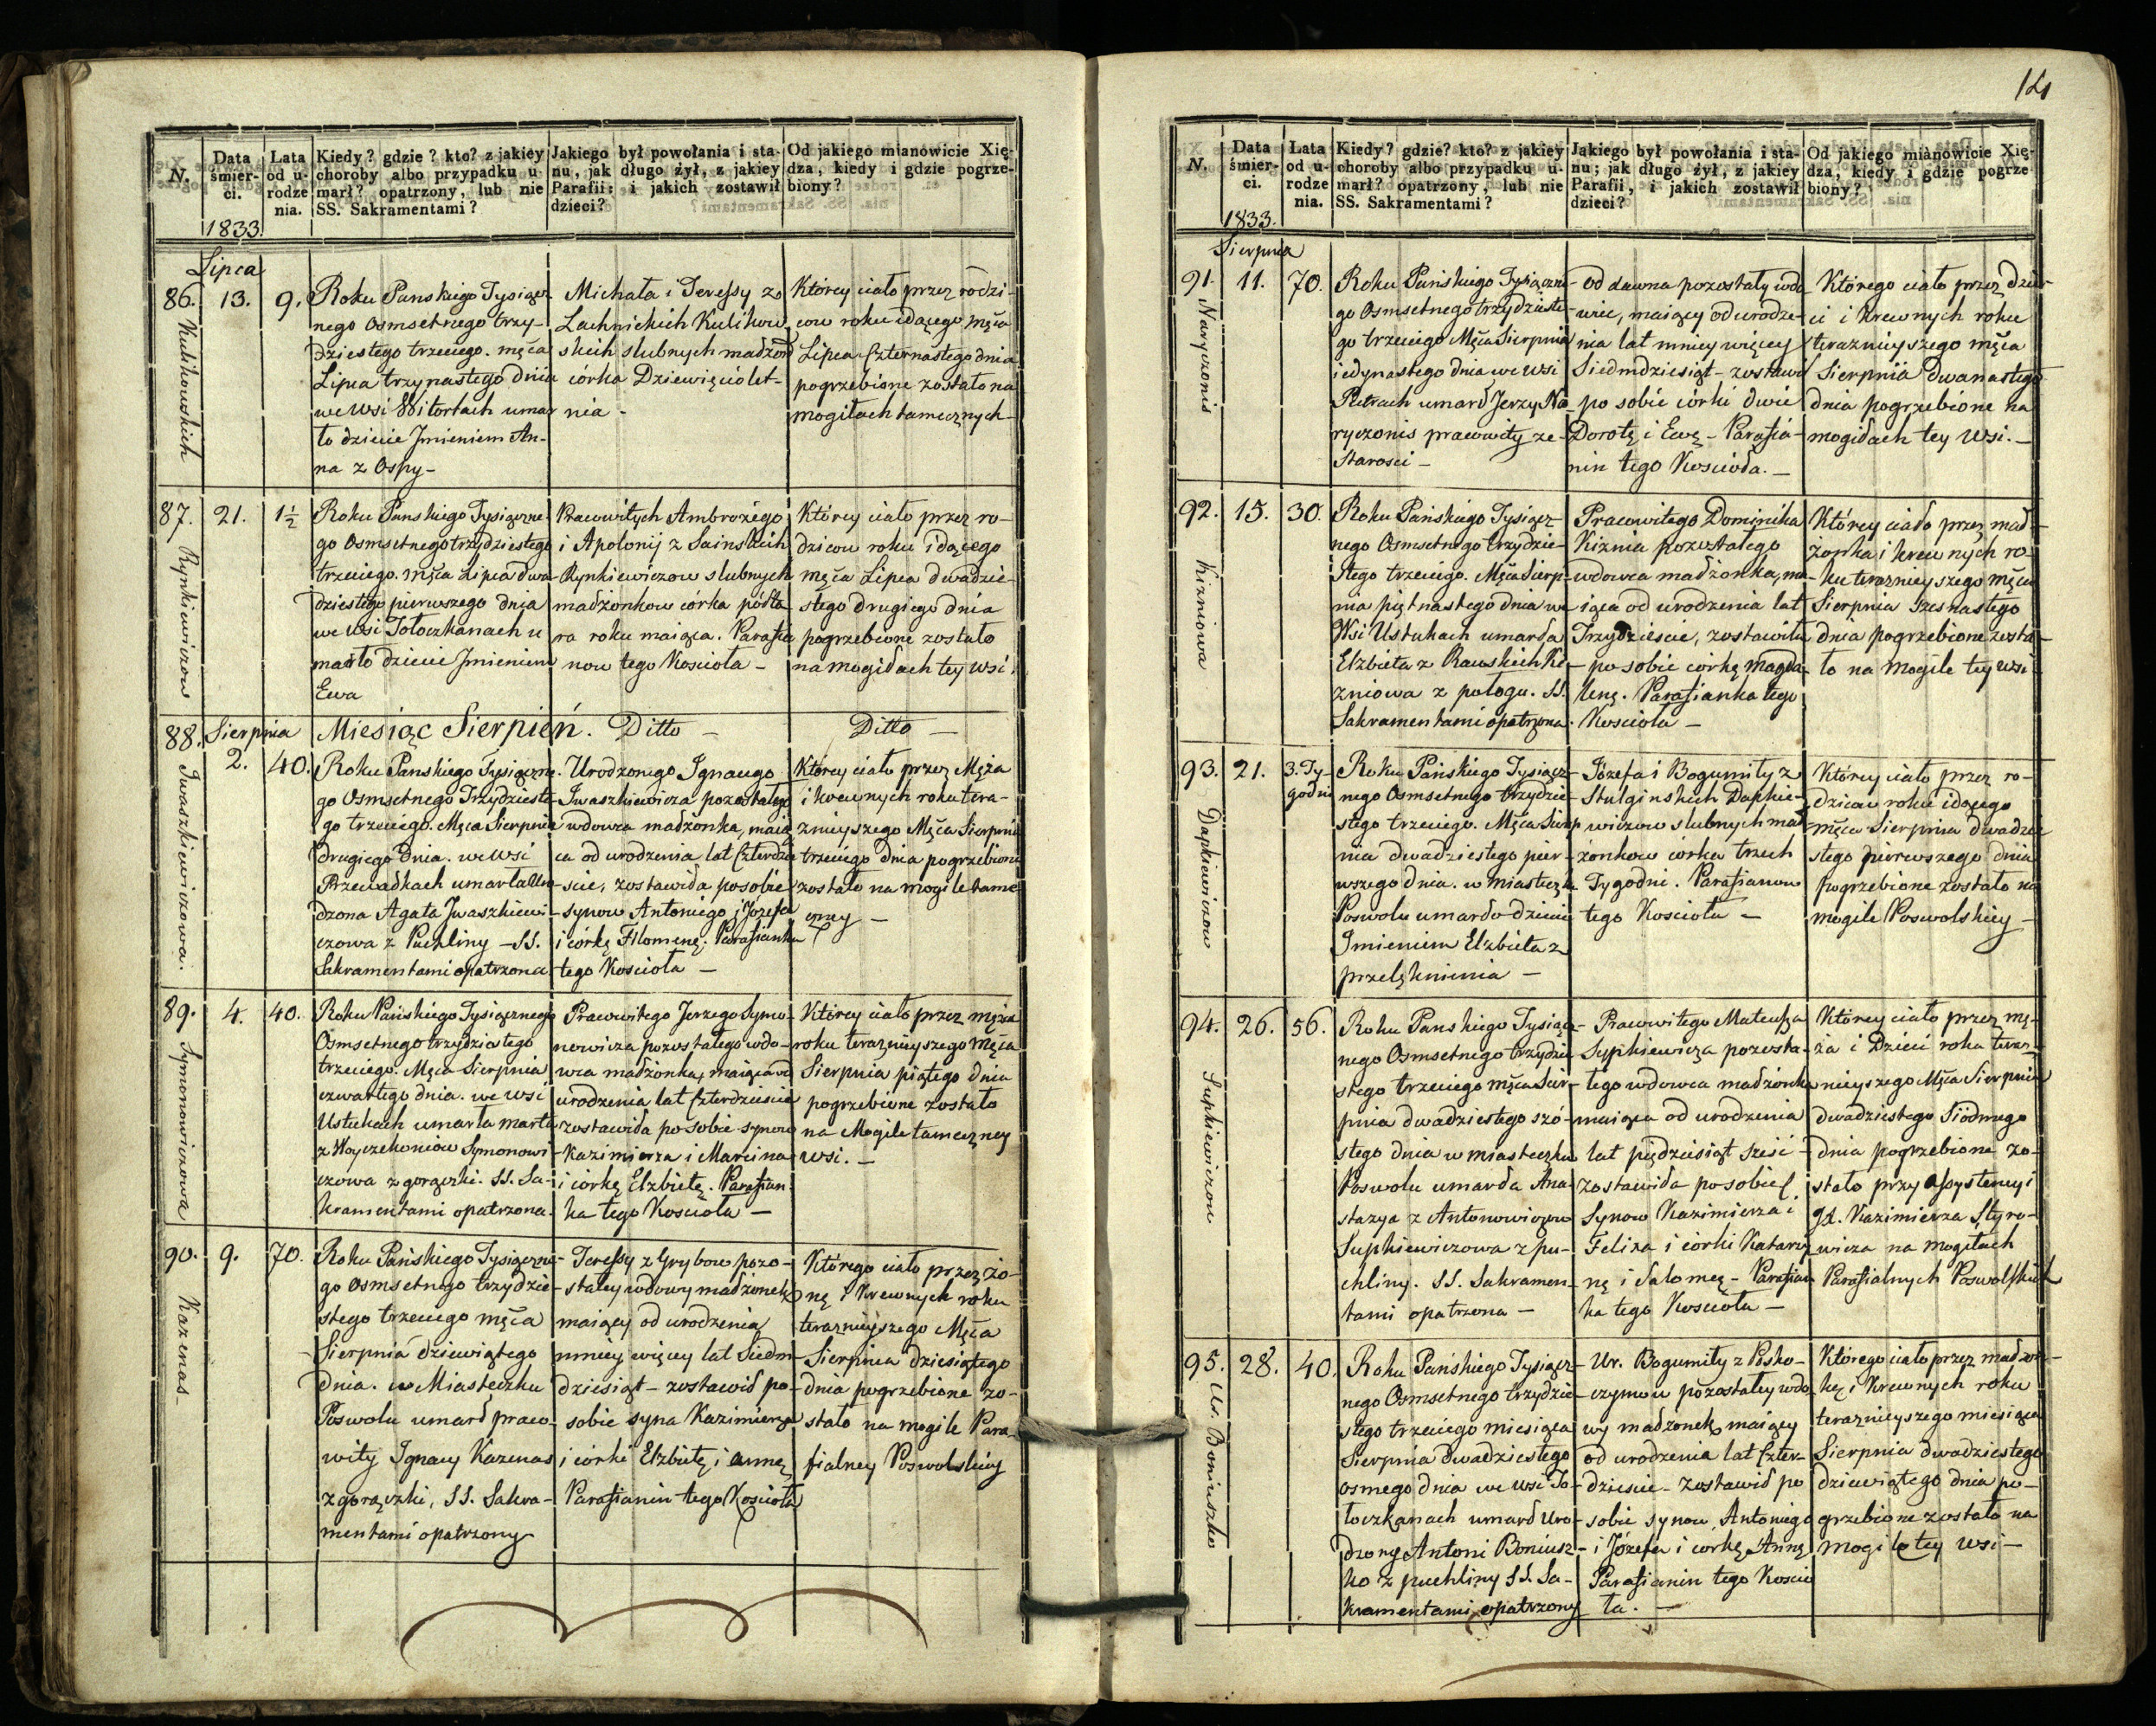 N.
Data śmier-
ci.
1833.
Lata
od u-
rodze
nia.
Kiedy? gdzie? kto? z jakiey
choroby albo przypadku u-
marł? opatrzony, lub nie
SS. Sakramentami?
Jakiego był powołania i sta-
nu, jak długo żył, z jakiey
Parafii: i jakich zostawił
dzieci?
Od jakiego mianowicie Xię-
dza, kiedy i gdzie pogrze-
biony?
Lipca
86. 13. 9.
Kulikowskich
Roku Panskiego Tysiącz-
nego Osmsetnego trzy-
dziestego trzeciego. męca
Lipca trzynastego dnia
we Wsi Witortach umar
ło dziecie Jmieniem An-
na z Ospy-
Michała i Teressy zo
Lachnickich Kulikow
skich slubnych madżon
córka Dziewięciolet-
nia -
Którey ciało przez rodzi-
cow roku idącego męca
Lipca Czternastego dnia
pogrzebione zostało na
mogiłach tamecznych-
87. 21. 1½
Rynkiewiczow
Roku Panskiego Tysiączne
go Osmsetnego trzydziestego
trzeciego. męca Lipca dwa-
dziestego pierwszego dnia
we Wsi Tołoczkanach u
marło dziecie Jmieniem
Ewa
Pracowitych Ambrożego
i Apolonij z Sainskich
Rynkiewiczow slubnych
madżonkow córka półto
ra roku maiąca. Parafia
now tego Koscioła -
Którey ciało przez ro-
dzicow roku idącego
męca Lipca dwadzie-
stego drugiego dnia
pogrzebione zostało
na mogiłach tey Wsi.
88. Sierpnia Miesiąc Sierpień. Ditto - Ditto -
2. 40.
Jwaszkiewiczowa.
Roku Panskiego Tysiączne
go Osmsetnego Trzydzieste-
go trzeciego. Męca Sierpnia
drugiego Dnia. we Wsi
Przewadkach umarła Uro
dzona Agata Jwaszkiewi-
czowa z Puchliny - SS.
Sakramentami opatrzona
Urodzonego Ignacego
Jwaszkiewicza pozostałego
wdowca madżonka, maią
ca od urodzenia lat Czterdzie
scie, zostawiła po sobie
synow Antoniego i Jozefa
i córkę Filomenę. Parafianka
tego Koscioła -
Którey ciało przez Męża
i krewnych roku tera-
znieyszego Męca Sierpnia
trzeciego dnia pogrzebione
zostało na mogile tame
czney -
89. 4. 40.
Symonowiczowa
Roku Pańskiego Tysiącznego
Osmsetnego trzydziestego
trzeciego. Męca Sierpnia
czwartego dnia. we Wsi
Ustukach umarła marta
z Woyczekoniow Symonowi-
czowa z gorączki. SS. Sa-
kramentami opatrzona.
Pracowitego Jerzego Symo-
nowicza pozostałego wdo-
wca madżonka, maiąca od
urodzenia lat Czterdziescie
zostawiła po sobie synow
Kazimierza i Marcina
i córkę Elzbietę. Parafian
ka tego Koscioła -
Którey ciało przez męża
roku teraznieyszego męca
Sierpnia piątego dnia
pogrzebione zostało
na Mogile tameczney
Wsi. -
90. 9. 70.
Kazenas-
Roku Pańskiego Tysiączne-
go Osmsetnego trzydzie-
stego trzeciego męca
Sierpnia dziewiątego
dnia. w Miasteczku
Poswolu umarł praco-
wity Ignacy Kazenas
z gorączki, SS. Sakra-
mentami opatrzony
Teressy z Grybow pozo-
stałey wdowy madżonek
maiący od urodzenia
mniey więcey lat Siedm
dziesiąt - zostawił po-
sobie syna Kazimierza
i córki Elzbietę i annę
Parafianin tego Koscioła
Którego ciało przez żo-
nę i krewnych roku
teraznieyszego Męca
Sierpnia dziesiątego
dnia pogrzebione zo-
stało na mogile Para-
fialney Poswolskiey
N.
Data
śmier-
ci.
1833.
Lata
od u-
rodze
nia.
Kiedy? gdzie? kto? z jakiey
choroby albo przypadku u-
marł? opatrzony, lub nie
SS. Sakramentami?
Jakiego był powołania i sta-
nu; jak długo żył, z jakiey
Parafii, i jakich zostawił
dzieci?
Od jakiego mianowicie Xię-
dza, kiedy i gdzie pogrze
biony?
Sierpnia
91. 11. 70.
Naryczonis
Roku Pańskiego Tysiączne
go Osmsetnego trzydzieste-
go trzeciego Męca Sierpnia
iedynastego dnia we Wsi
Pietrach umarł Jerzy Na
ryczonis pracowity ze-
Starosci -
od dawna pozostały wdo
wiec, maiący od urodze-
nia lat mniey więcey
Siedmdziesiąt - zostawił
po sobie córki dwie
Dorotę i Ewę - Parafia-
nin tego Koscioła. -
Którego ciało przez dzie-
ci i krewnych roku
teraznieyszego męca
Sierpnia dwanastego
dnia pogrzebione na
mogiłach tey Wsi. -
92. 15. 30.
Kizniowa
Roku Pańskiego Tysiącz-
nego Osmsetnego trzydzie-
stego trzeciego. Męca Sierp-
nia piętnastego dnia we
Wsi Ustukach umarła
Elzbieta z Rawskich Ki-
zniowa z połogu. SS.
Sakramentami opatrzona.
Pracowitego Dominika
Kiznia pozostałego
wdowca madżonka, ma-
iąca od urodzenia lat
Trzydziescie, zostawiła
po sobie córkę Magda-
lenę. Parafianka tego
Koscioła -
Którey ciało przez mad-
żonka i krewnych ro-
ku teraznieyszego męca
Sierpnia Szesnastego
dnia pogrzebione zosta-
ło na Mogile tey Wsi
93. 21. 3. Ty-
godni
Dapkiewiczow
Roku Pańskiego Tysiącz-
nego Osmsetnego trzydzie-
stego trzeciego. Męca Sierp
nia dwadziestego pier-
wszego dnia. w miasteczku
Poswolu umarło dziecie
Jmieniem Elzbieta z
przelęknienia -
Józefa i Bogumiły z
Stulginskich Dapkie-
wiczow slubnych mał-
żonkow córka trzech
Tygodni. Parafianow
tego Koscioła -
Którey ciało przez ro-
dzicow roku idącego
męca Sierpnia dwadzie
stego pierwszego dnia
pogrzebione zostało na
mogile Poswolskiey -
94. 26. 56.
Supkiewiczow
Roku Panskiego Tysiącz-
nego Osmsetnego trzydzie
stego trzeciego męca Sier-
pnia dwadziestego szó-
stego dnia w miasteczku
Poswolu umarła Ana-
stazya z Antonowiczow
Supkiewiczowa z pu-
chliny. SS. Sakramen-
tami opatrzona -
Pracowitego Mateusza
Supkiewicza pozosta-
łego wdowca madżonka
maiąca od urodzenia
lat pięćdziesiąt sześć
zostawiła po sobie
Synow Kazimierza i
Felixa i córki Katarzy
nę i Salomeę - Parafian
ka tego Koscioła -
Którey ciało przez mę-
ża i Dzieci roku teraz-
nieyszego Męca Sierpnia
dwadziestego Siódmego
dnia pogrzebione zo-
stało przy assystencyi
Kazimierza Styro-
wicza na mogiłach
Parafialnych Poswolskich
95. 28. 40.
Ur. Boniuszko
Roku Pańskiego Tysiącz-
nego Osmsetnego trzydzie-
stego trzeciego miesiąca
Sierpnia dwadziestego
osmego dnia we Wsi To-
łoczkanach umarł Uro-
dzony Antoni Boniusz-
ko z puchliny SS. Sa-
kramentami opatrzony
Ur. Bogumiły z Posko-
czymow pozostałey wdo
wy madżonek, maiący
od urodzenia lat Czter-
dziescie - zostawił po
sobie synow, Antoniego
i Józefa i córkę Annę
Parafianin tego Koscio
ła. -
Którego ciało przez madżon-
kę i krewnych roku
teraznieyszego miesiąca
Sierpnia dwadziestego
dziewiątego dnia po-
grzebione zostało na
mogile tey Wsi -